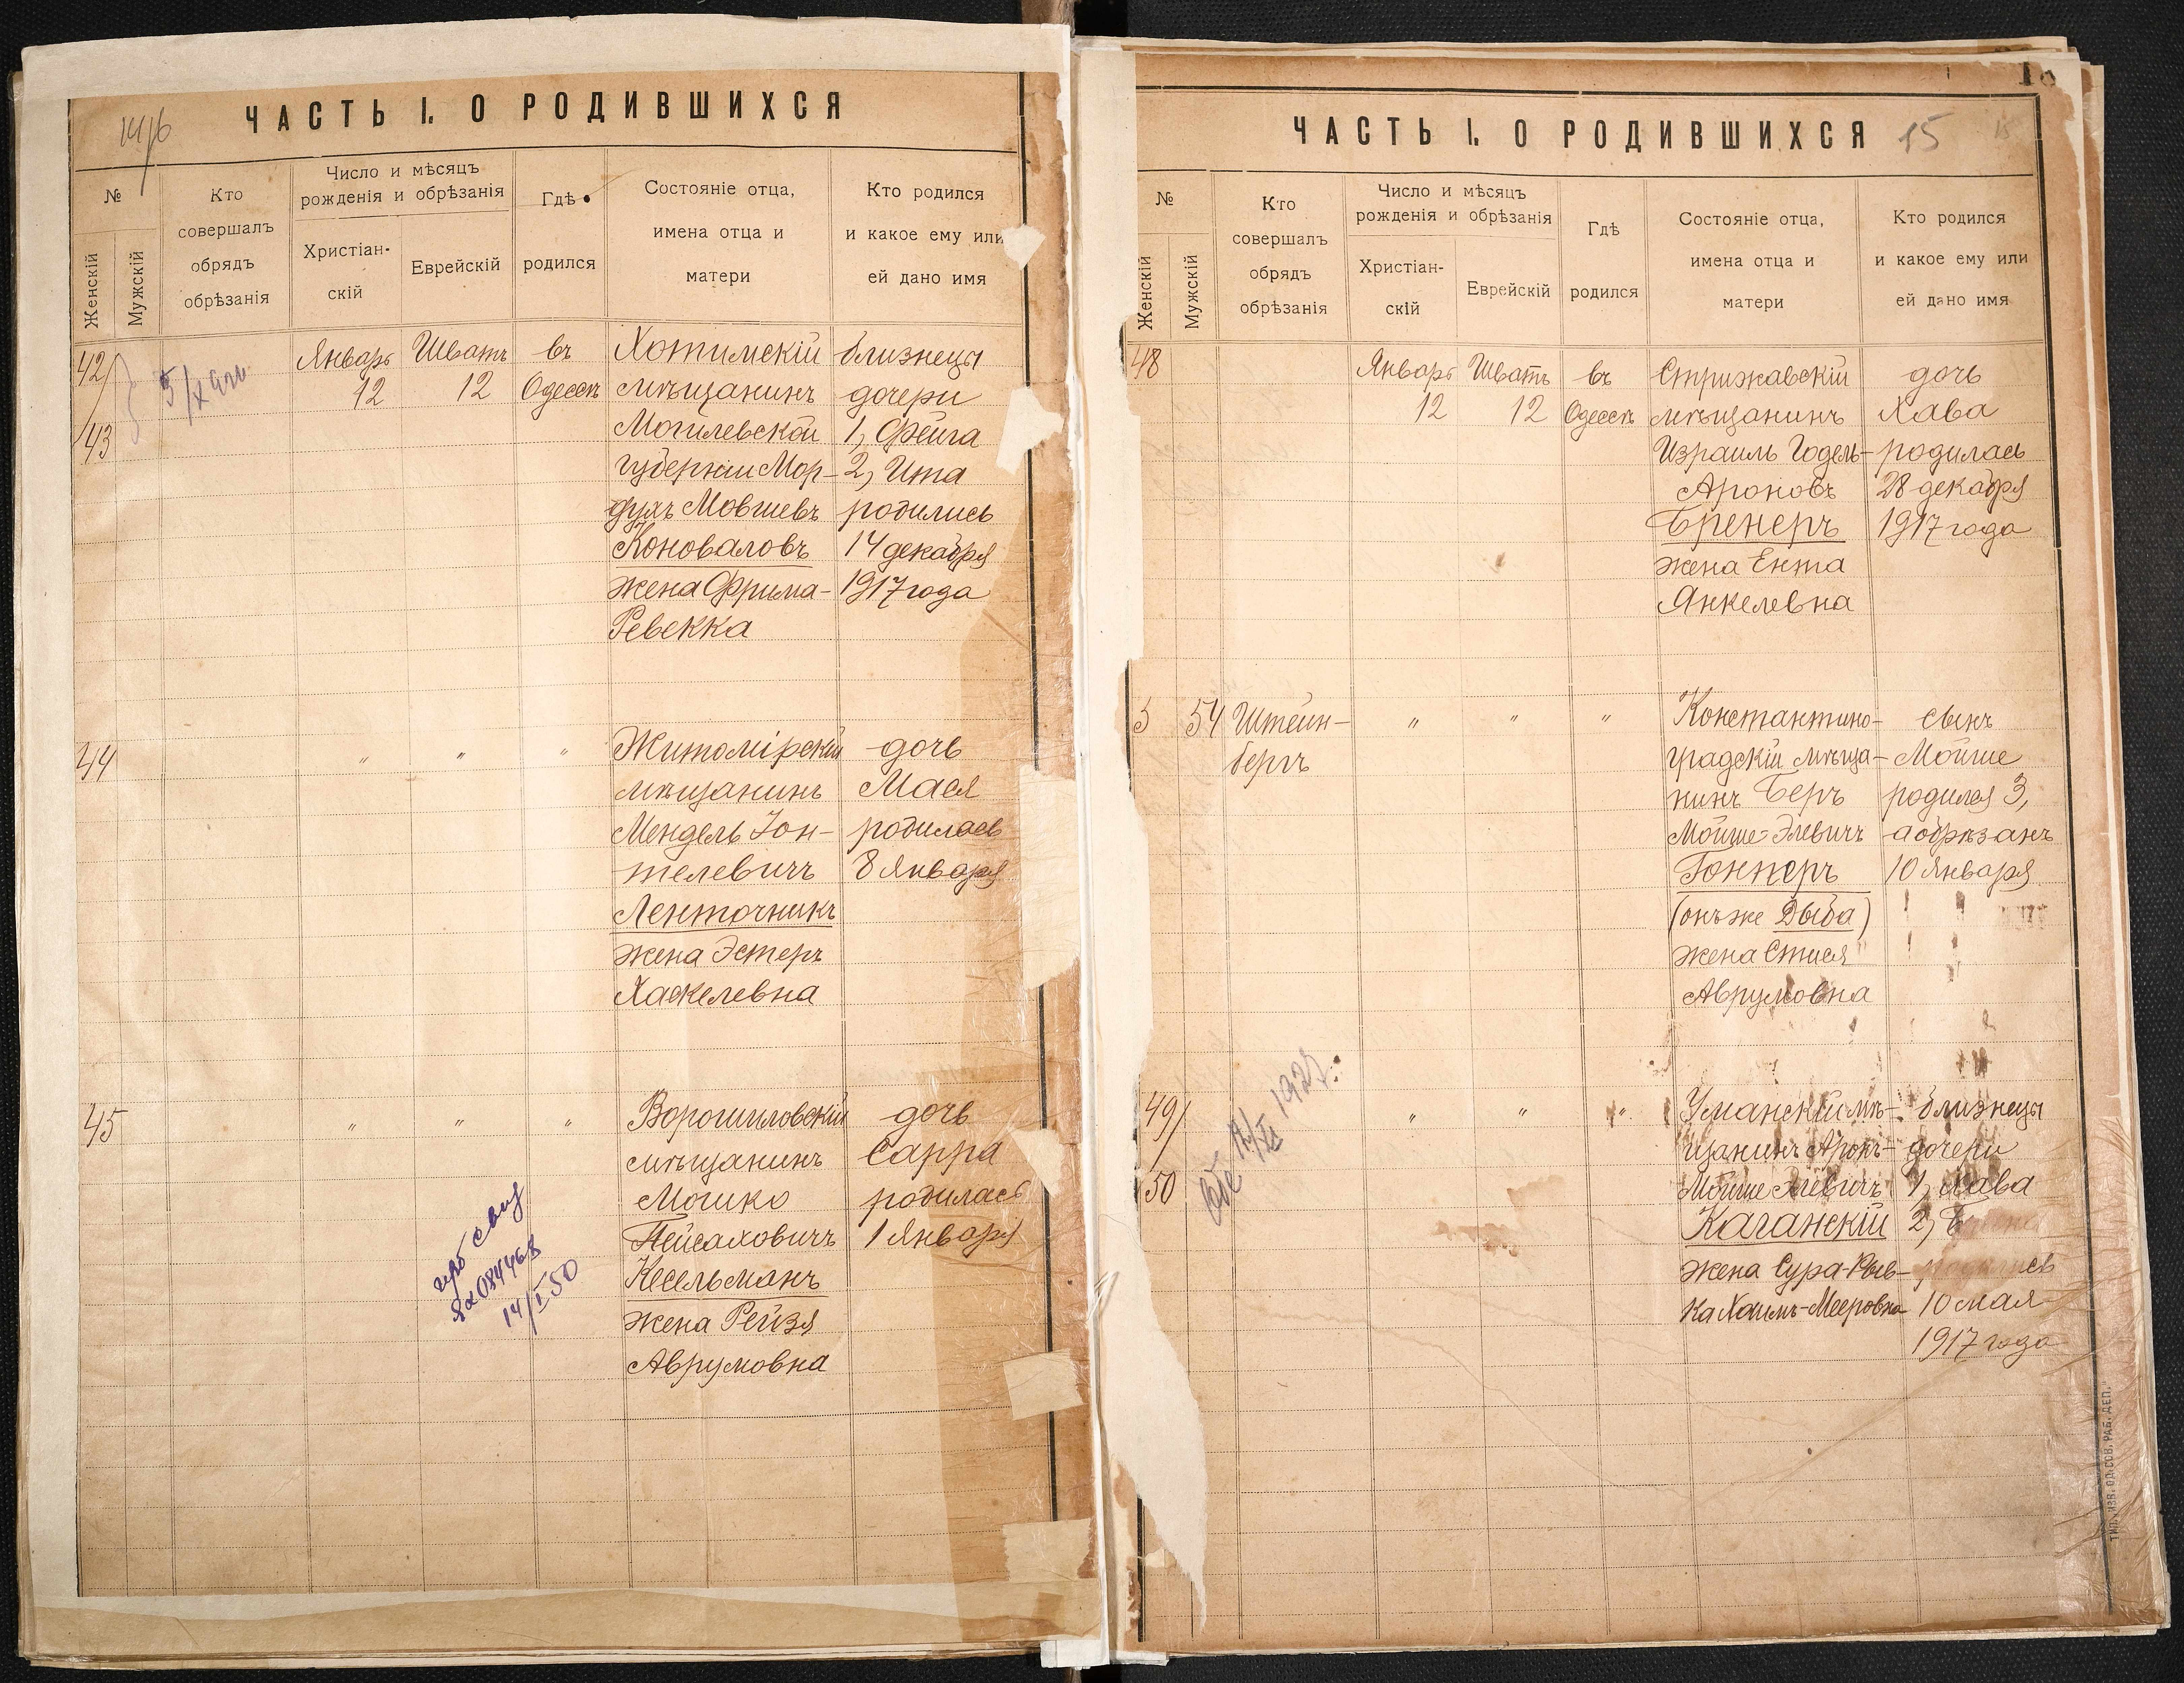 ЧАСТЬ I. О РОДИВШИХСЯ
№
Женскій
Мужскій
Кто
совершалъ
обрядъ
обрѣзанія
Число и мѣсяцъ
рожденія и обрѣзанія
Христіан-
скій
Еврейскій
Гдѣ
родился
Состояніе отца,
имена отца и
матери
Кто родился
и какое ему или
ей дано имя
42
43
Январь
12
Шватъ
12
въ
Одессѣ
Хотимскій
мѣщанинъ
Могилевской
губерніи Мор-
духъ Мовшевъ
Коноваловъ
жена Фрима-
Ревекка
близнецы
дочери
1, Фейга
2, Ита
родились
14 декабря
1917 года
44
" " "
Житомірскій
мѣщанинъ
Мендель Іон-
телевичъ
Ленточникъ
жена Эстеръ
Хаскелевна
дочь
Мася
родилась
8 Января
45
" " "
Ворошиловскій
мѣщанинъ
Мошко
Пейсаховичъ
Кесельманъ
жена Рейзя
Аврумовна
дочь
Сарра
родилась
1 Января
14/I 50
ЧАСТЬ I. О РОДИВШИХСЯ
15
№
Женскій
Мужскій
Кто
совершалъ
обрядъ
обрѣзанія
Число и мѣсяцъ
рожденія и обрѣзанія
Христіан-
скій
Еврейскій
Гдѣ
родился
Состояніе отца,
имена отца и
матери
Кто родился
и какое ему или
ей дано имя
48
Январь
12
Шватъ
12
въ
Одессѣ
Стрижавскій
мѣщанинъ
Израиль Годель-
Ароновъ
Бренеръ
жена Ента
Янкелевна
дочь
Хава
родилась
28 декабря
1917 года
54
Штейн-
бергъ
" " "
Константино-
градскій мѣща-
нинъ Беръ
Мойше-Элевичъ
Гонперъ
(онъ же Дыба)
жена Стися
Аврумовна
сынъ
Мойше
родился 3,
а обрѣзанъ
10 Января
49
50
" " "
Уманскій мѣ-
щанинъ Аронъ-
Мойше Элевичъ
Каганскій
жена Сура-Рыв-
ка Хаимъ-Мееровна
близнецы
дочери
1, Хава
2,
родились
10 мая
1917 года
ТИП. ИЗВ. ОД. СОВ. РАБ. ДЕП.